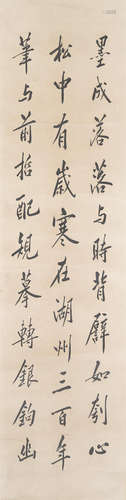 墨成落落与時背譬如刳心
松中有歲寒在湖州三百年
筆与前哲配規摹轉銀鉤幽